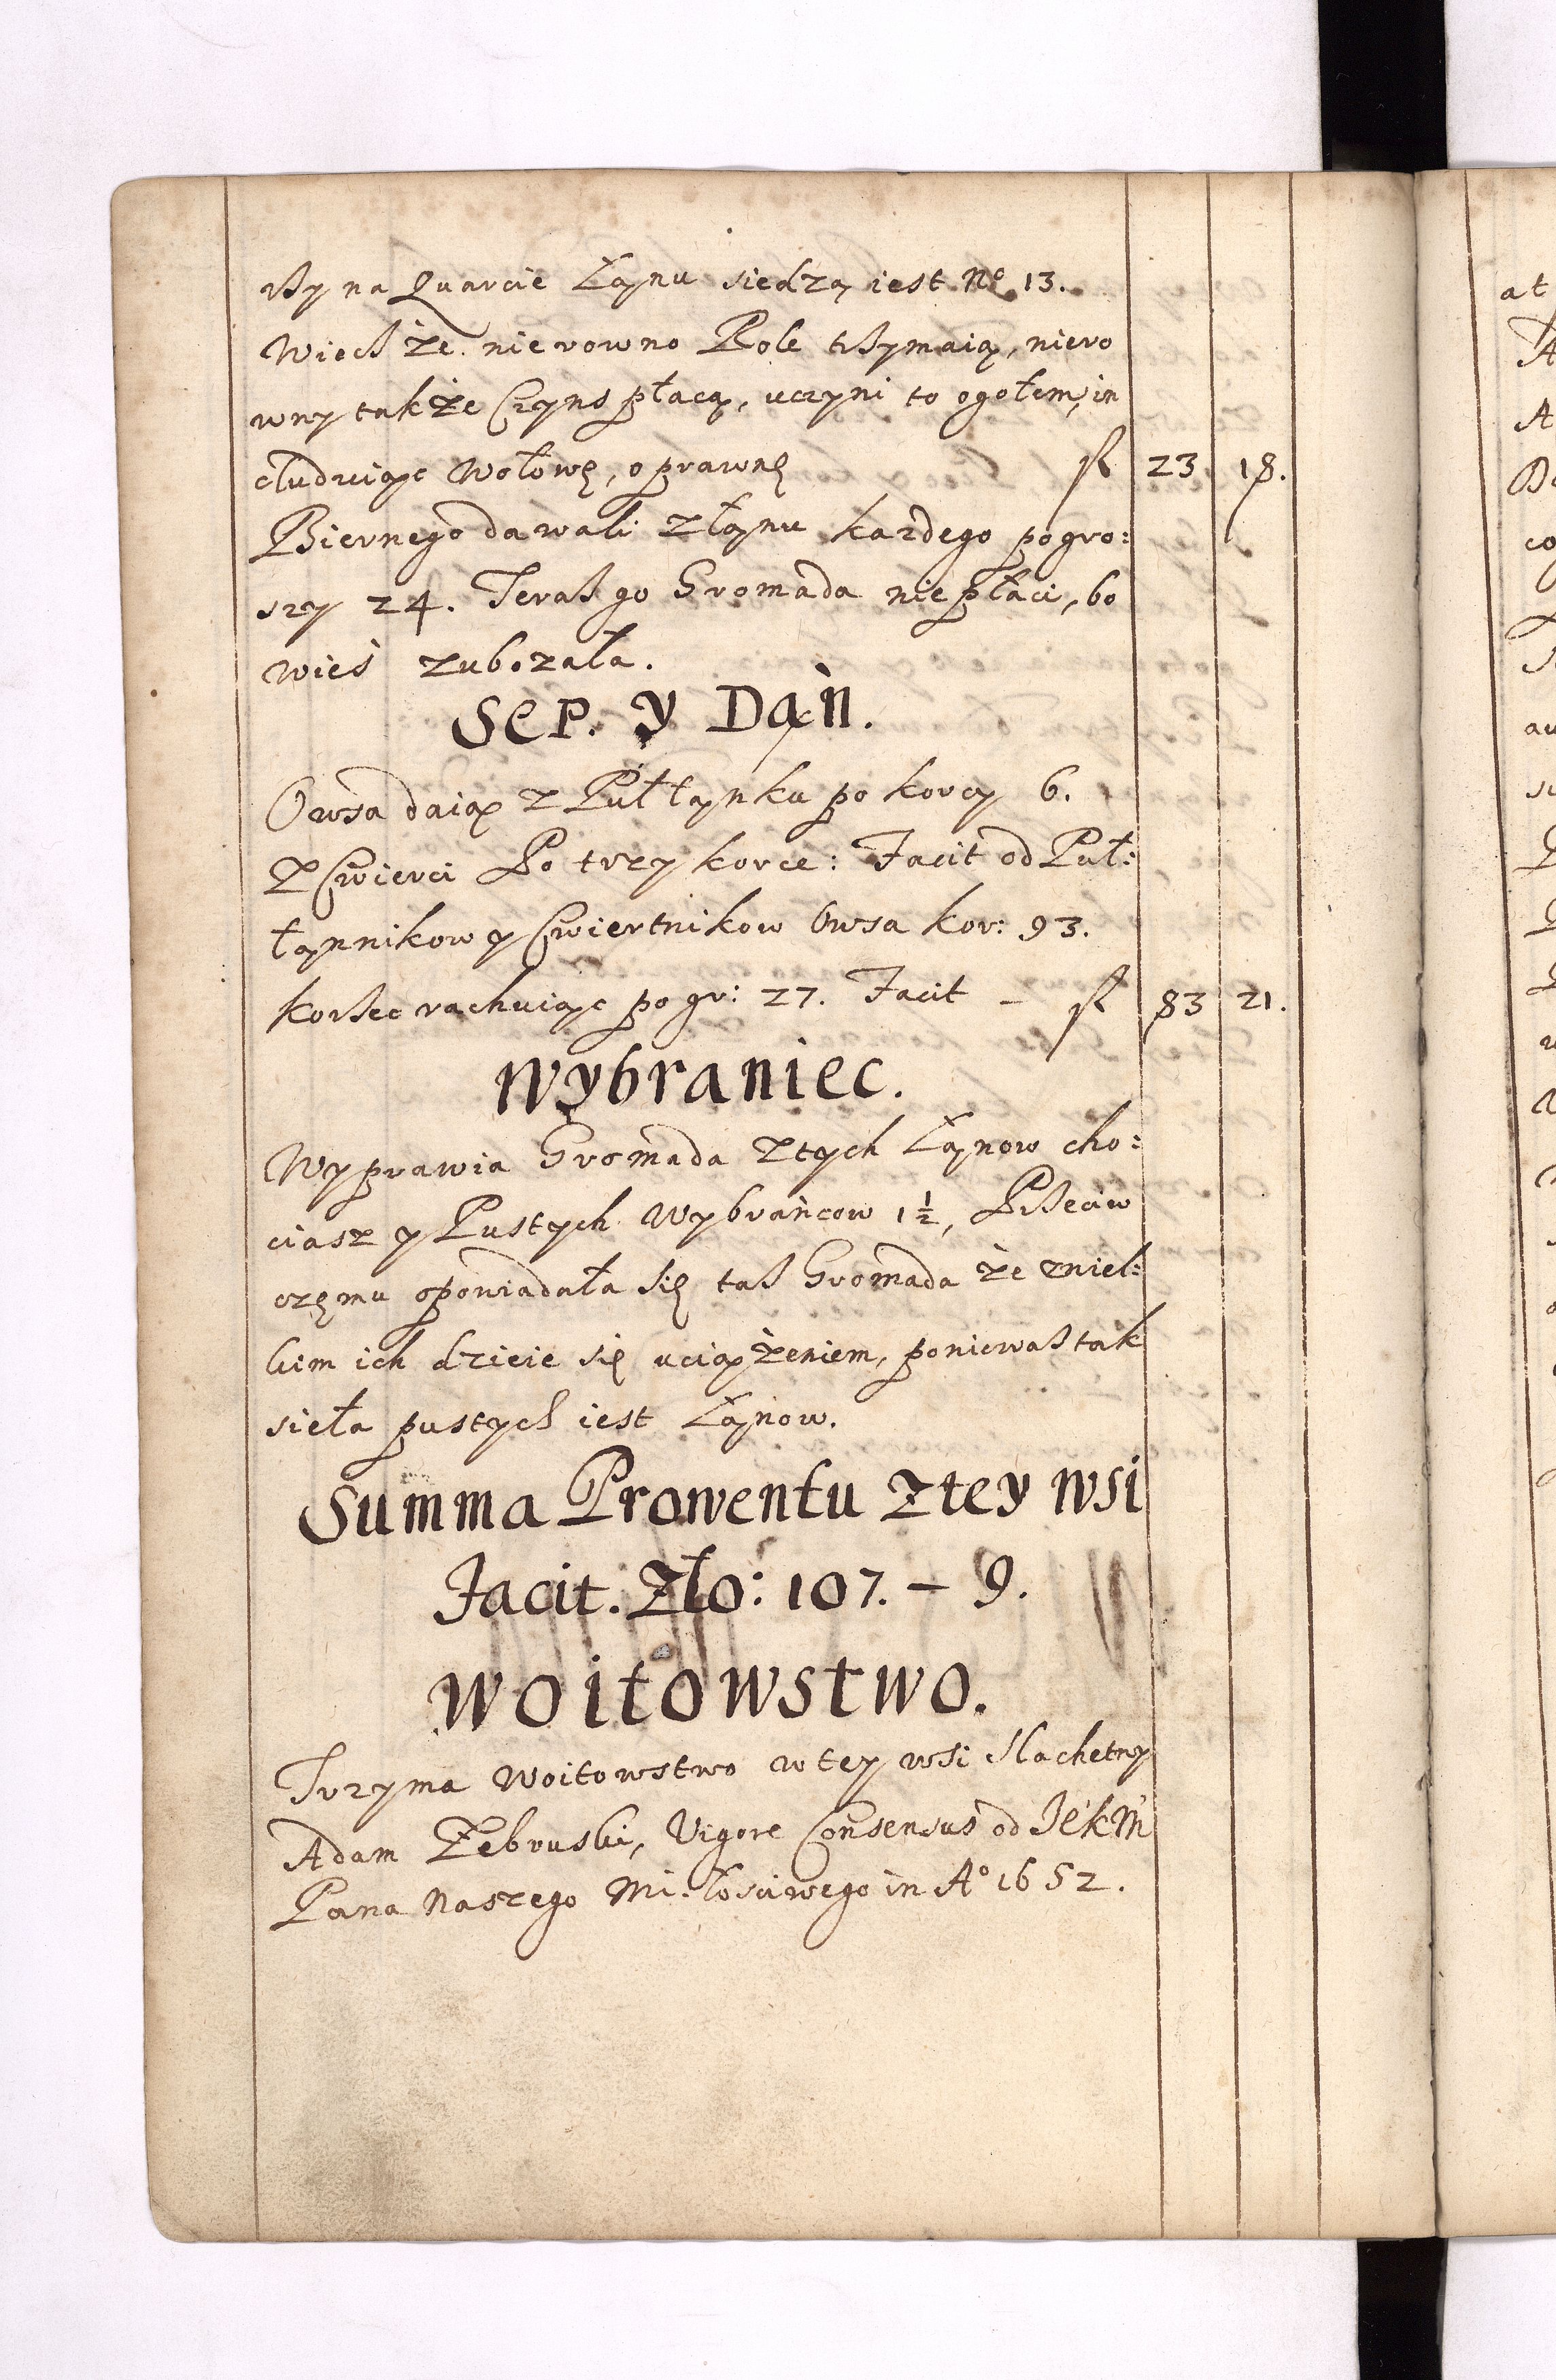 rzy na Quarcie Łanu siedzą iest No 13.
Wiesz że nierowno Role trzymaią, niero
wny także Czyns płacą, uczyni to ogołem, in
cluduiąc Wołowę, oprawnę fl 23 18.
Biernego dawali z łanu kazdego po gro:
szy 24. Terasz go Gromada nie płaci, bo
wieś zubozała.
Sep. y Dań.
Owsa daią z Puł łanku po korcy 6.
z Cwierci Po trzy korce: Facit od Puł:
łannikow y Cwiertnikow Owsa kor: 93.
korzec rachuiąc po gr: 27. Facit – fl 83 21.
Wybraniec.
Wyprawia Gromada z tych Łanow cho:
ciasz y Pustych Wybrańcow 1½, Przeciw
czemu opowiadała się tasz Gromada że z niel:
kim ich dzieie się uciążeniem, poniewasz tak
sieła pustych iest Łanow.
Summa Prowentu z tey wsi
Facit. Zło: 107. – 9.
Woitowstwo.
Trzyma Woitowstwo w tey wsi Slachetny
Adam Żebruski, Vigore Consensus od Je'kM
Pana Naszego Miłosciwego in Ao 1652.